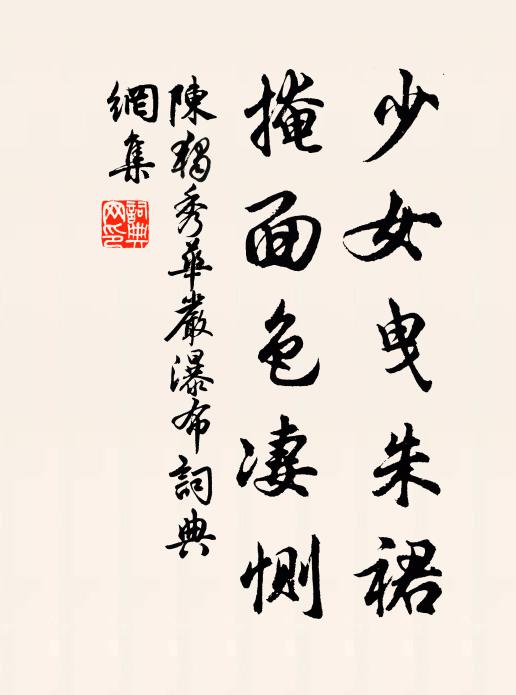 少女曳朱裙
掩面色凄惻
陳獨秀華嚴瀑布詞典
網集
詞典網印